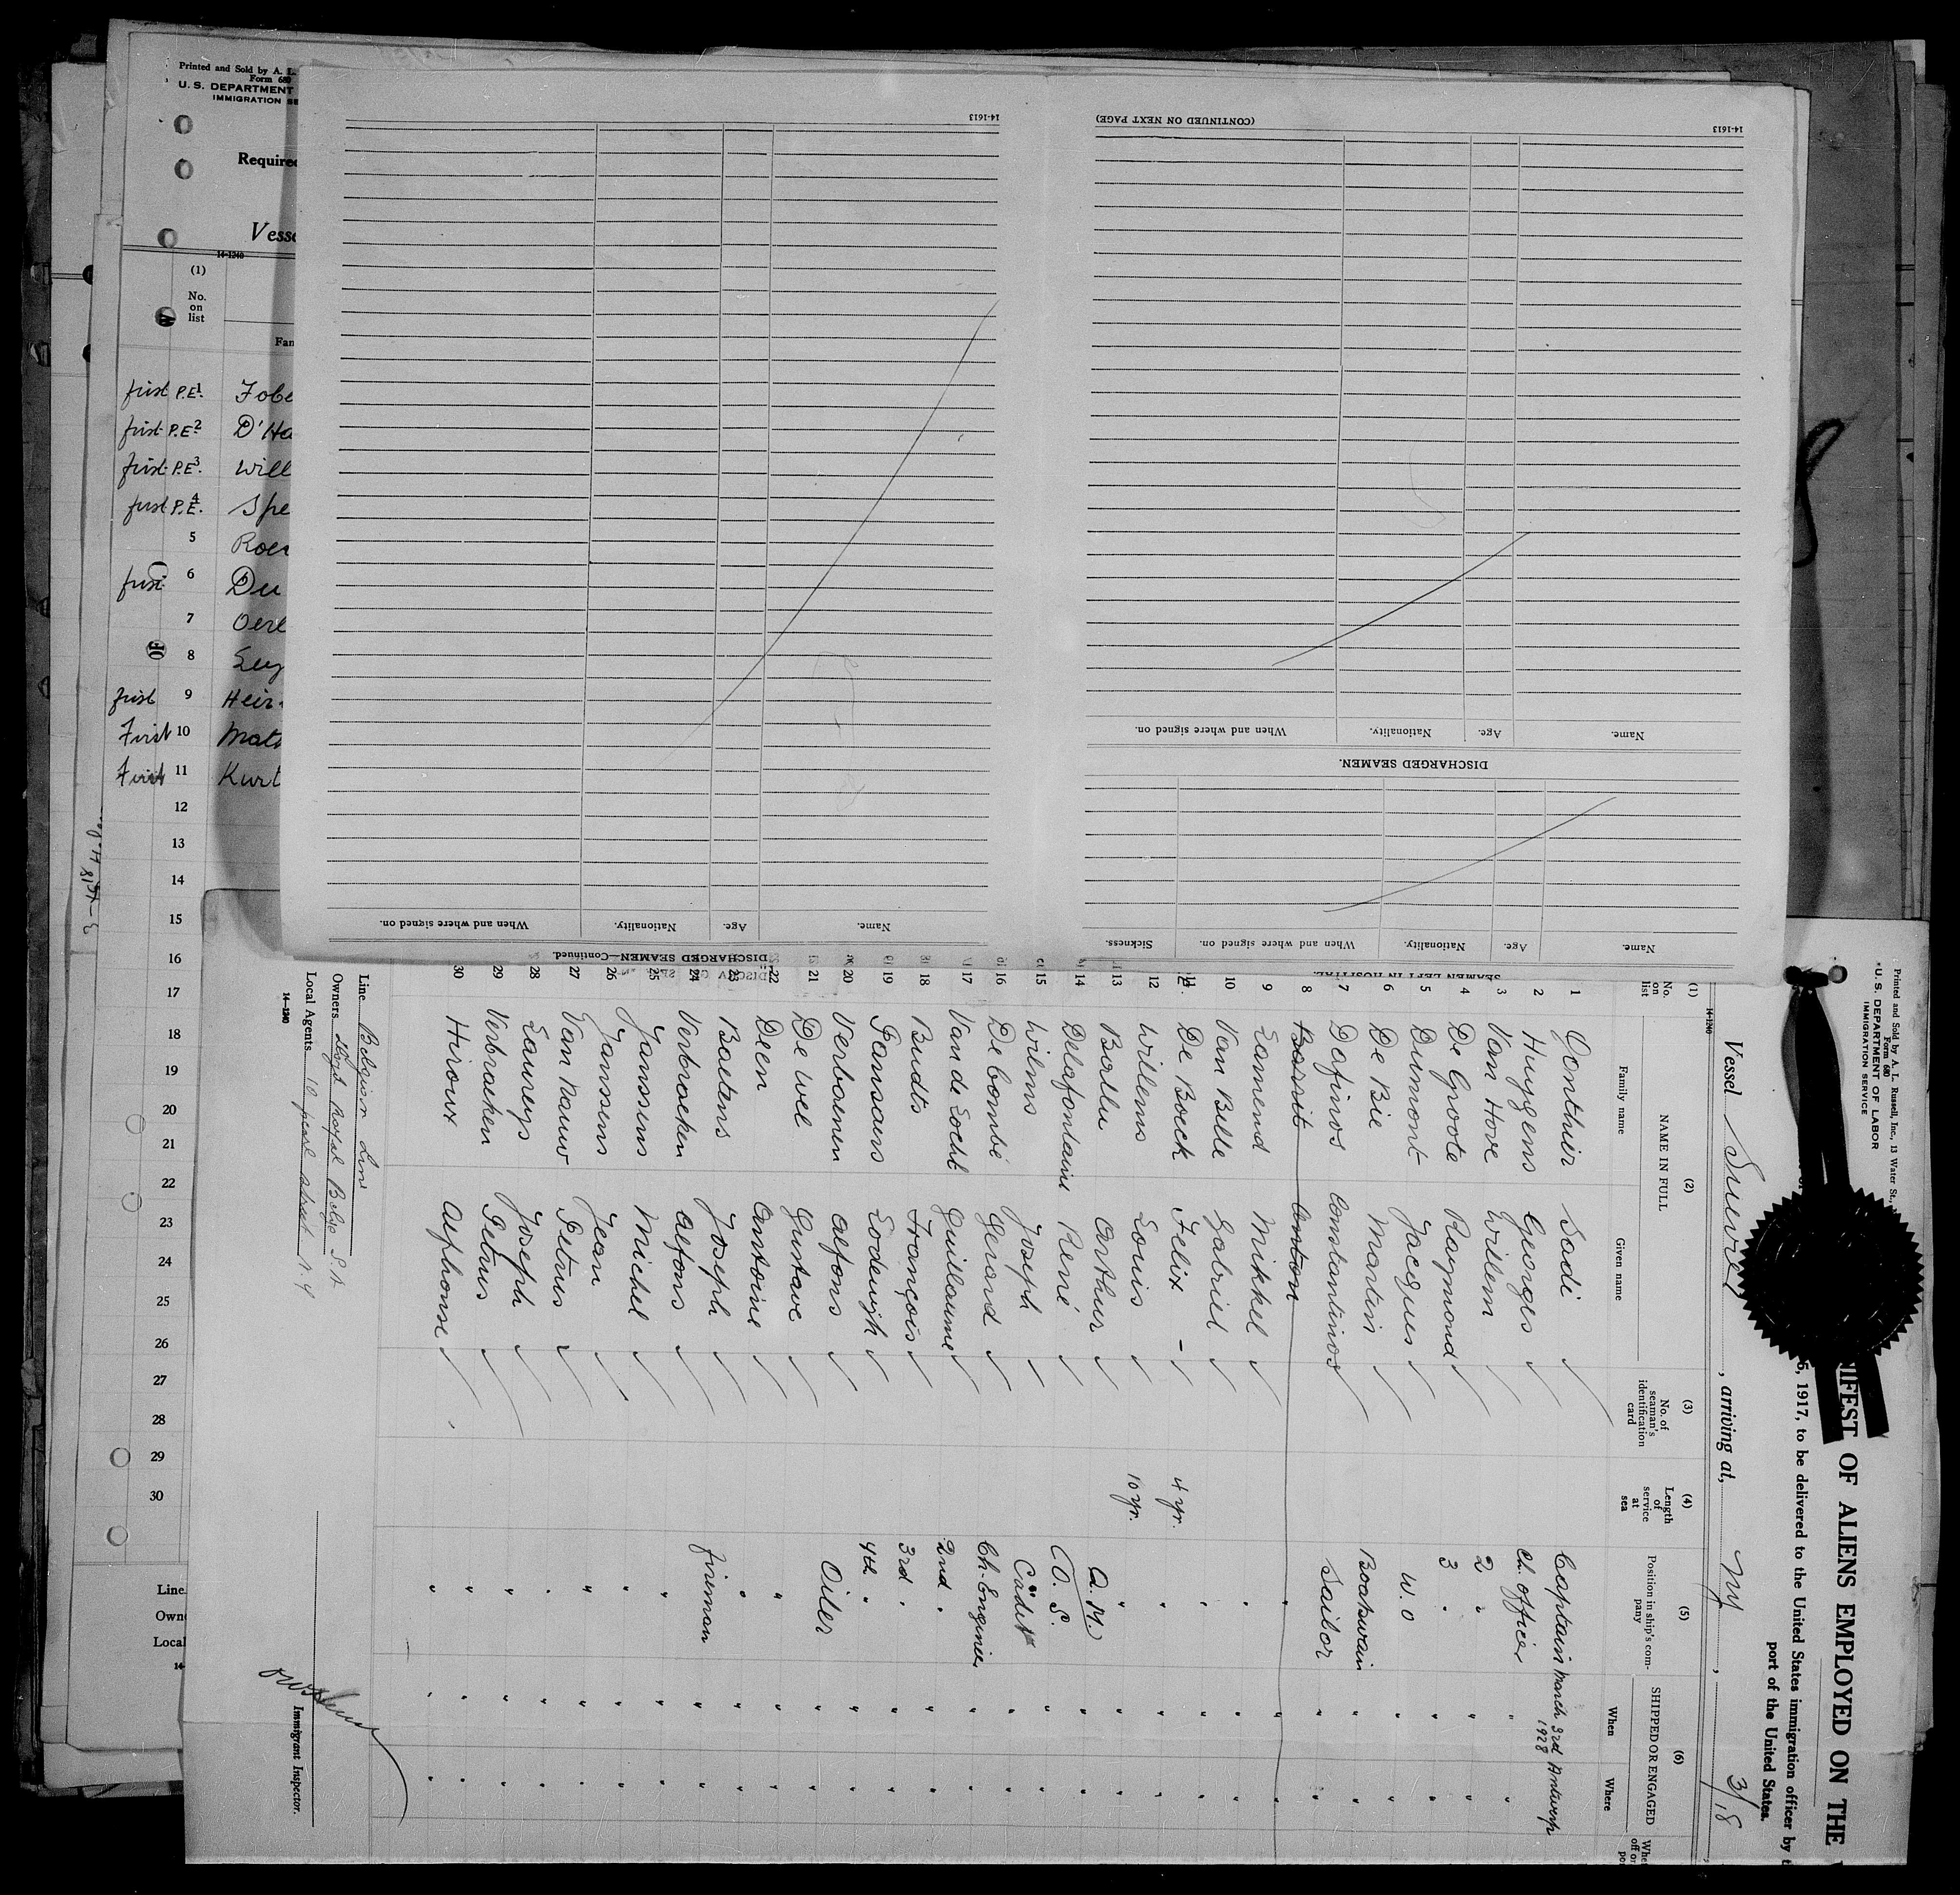 Printed and Sold by A. L.
Form 680
U. S. DEPARTMENT
IMMIGRATION SE
Required
Vesse
14-1240
(1)
No.
on
list
Fam
first P.E. 1 Fobe
first P.E. 2 D'Ha
first P.E. 3 Will
first P.E. 4 Spe
5 Roer
first 6 Du
7 Oere
8 Luy
first 9 Heir
First 10 Mat
First 11 Kurt
12
13
14
15
16
17
18
19
20
21
22
23
24
25
26
27
28
29
30
Line
Own
Local
14-
14-1613
DISCHARGED SEAMEN—Continued.
Name. Age. Nationality. When and where signed on.
SEAMEN LEFT IN HOSPITAL.
Name. Age. Nationality. When and where signed on. Sickness.
DISCHARGED SEAMEN.
Name. Age. Nationality. When and where signed on.
14-1613
(CONTINUED ON NEXT PAGE)
Printed and Sold by A. L. Russell, Inc., 13 Water St.,
Form 680
U. S. DEPARTMENT OF LABOR
IMMIGRATION SERVICE
IFEST OF ALIENS EMPLOYED ON THE
5, 1917, to be delivered to the United States immigration officer by t
port of the United States.
Vessel , arriving at, NY , 3/18
14-1240
(1) (2) (3) (4) (5) (6)
No. on list NAME IN FULL No. of seaman's identification card Length of service at sea Position in ship's company SHIPPED OR ENGAGED
Family name Given name When Where
1 Gonthier Sadi Captain March 3rd 1928 Antwerp
2 Huygens Georges Ch. Officer " "
3 Van Hove Willem 2 " " "
4 De Groote Raymond 3 " " "
5 Dumont Jacques W.O " "
6 De Bie Martin Boatswain " "
7 Dafinos Constantinos Sailor " "
8 Barrit Anton " " "
9 Lamend Mikkel " " "
10 Van Belle Gabriel " " "
11 De Boeck Felix - 4 yr. " " "
12 Willems Louis 10 yr. " " "
13 Barlu Arthur Q. M. " "
14 Delafontaine René O. S. " "
15 Wilms Joseph Cadet " "
16 De Combé Gerard Ch. Engineer " "
17 Van de Locht Guillaume 2nd " " "
18 Budts François 3rd " " "
19 Pansaers Lodewijk 4th " " "
20 Verbaenen Alfons Oiler " "
21 De Wel Gustave " " "
22 Deen Antoine " " "
23 Baetens Joseph fireman " "
24 Verbraeken Alfons " " "
25 Janssens Michel " " "
26 Janssens Jean " " "
27 Van Nauw Petrus " " "
28 Laureys Joseph " " "
29 Verbraeken Petrus " " "
30 Hiroux Alphonse " " "
Line Belgian Line
Owners Lloyd Royal Belge S.A
Local Agents 10 pearl street N.Y
14-1240
Immigrant Inspector.